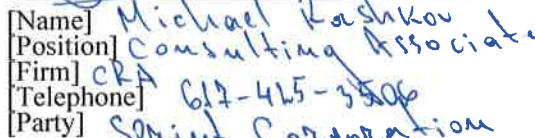 [Name] Michael Kashkov
[Position] Consulting Associate
[Firm] CRA
[Telephone] 617-425-3506
[Party] Sprint Corporation